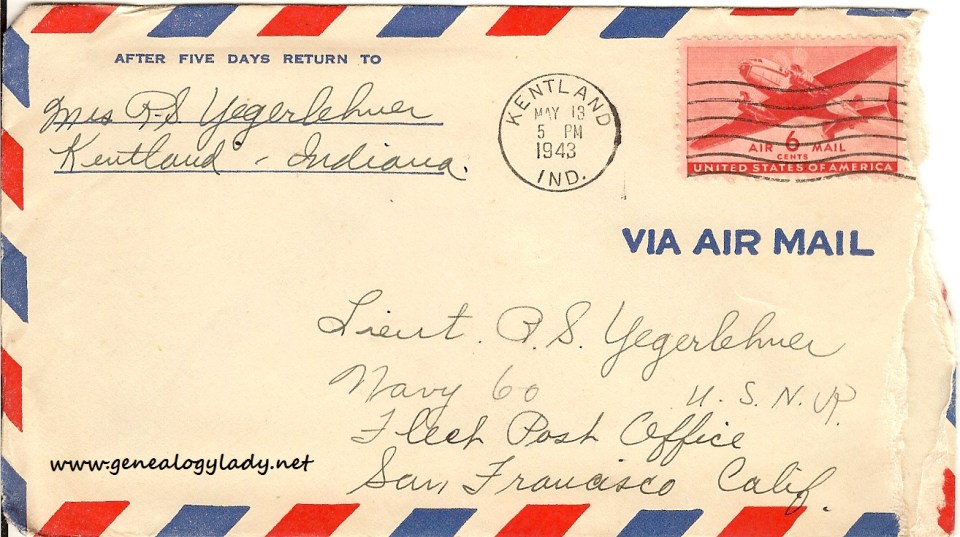 AFTER FIVE DAYS RETURN TO
Mrs R.S. Yegerlehner
Kentland - Indiana.
KENTLAND
MAY 13
5 PM
1943
IND.
AIR 6 MAIL
CENTS
UNITED STATES OF AMERICA
VIA AIR MAIL
Lieut. R.S. Yegerlehner
Navy 60 U.S.N.R.
Fleet Post Office
San Francisco Calif.
www.genealogylady.net